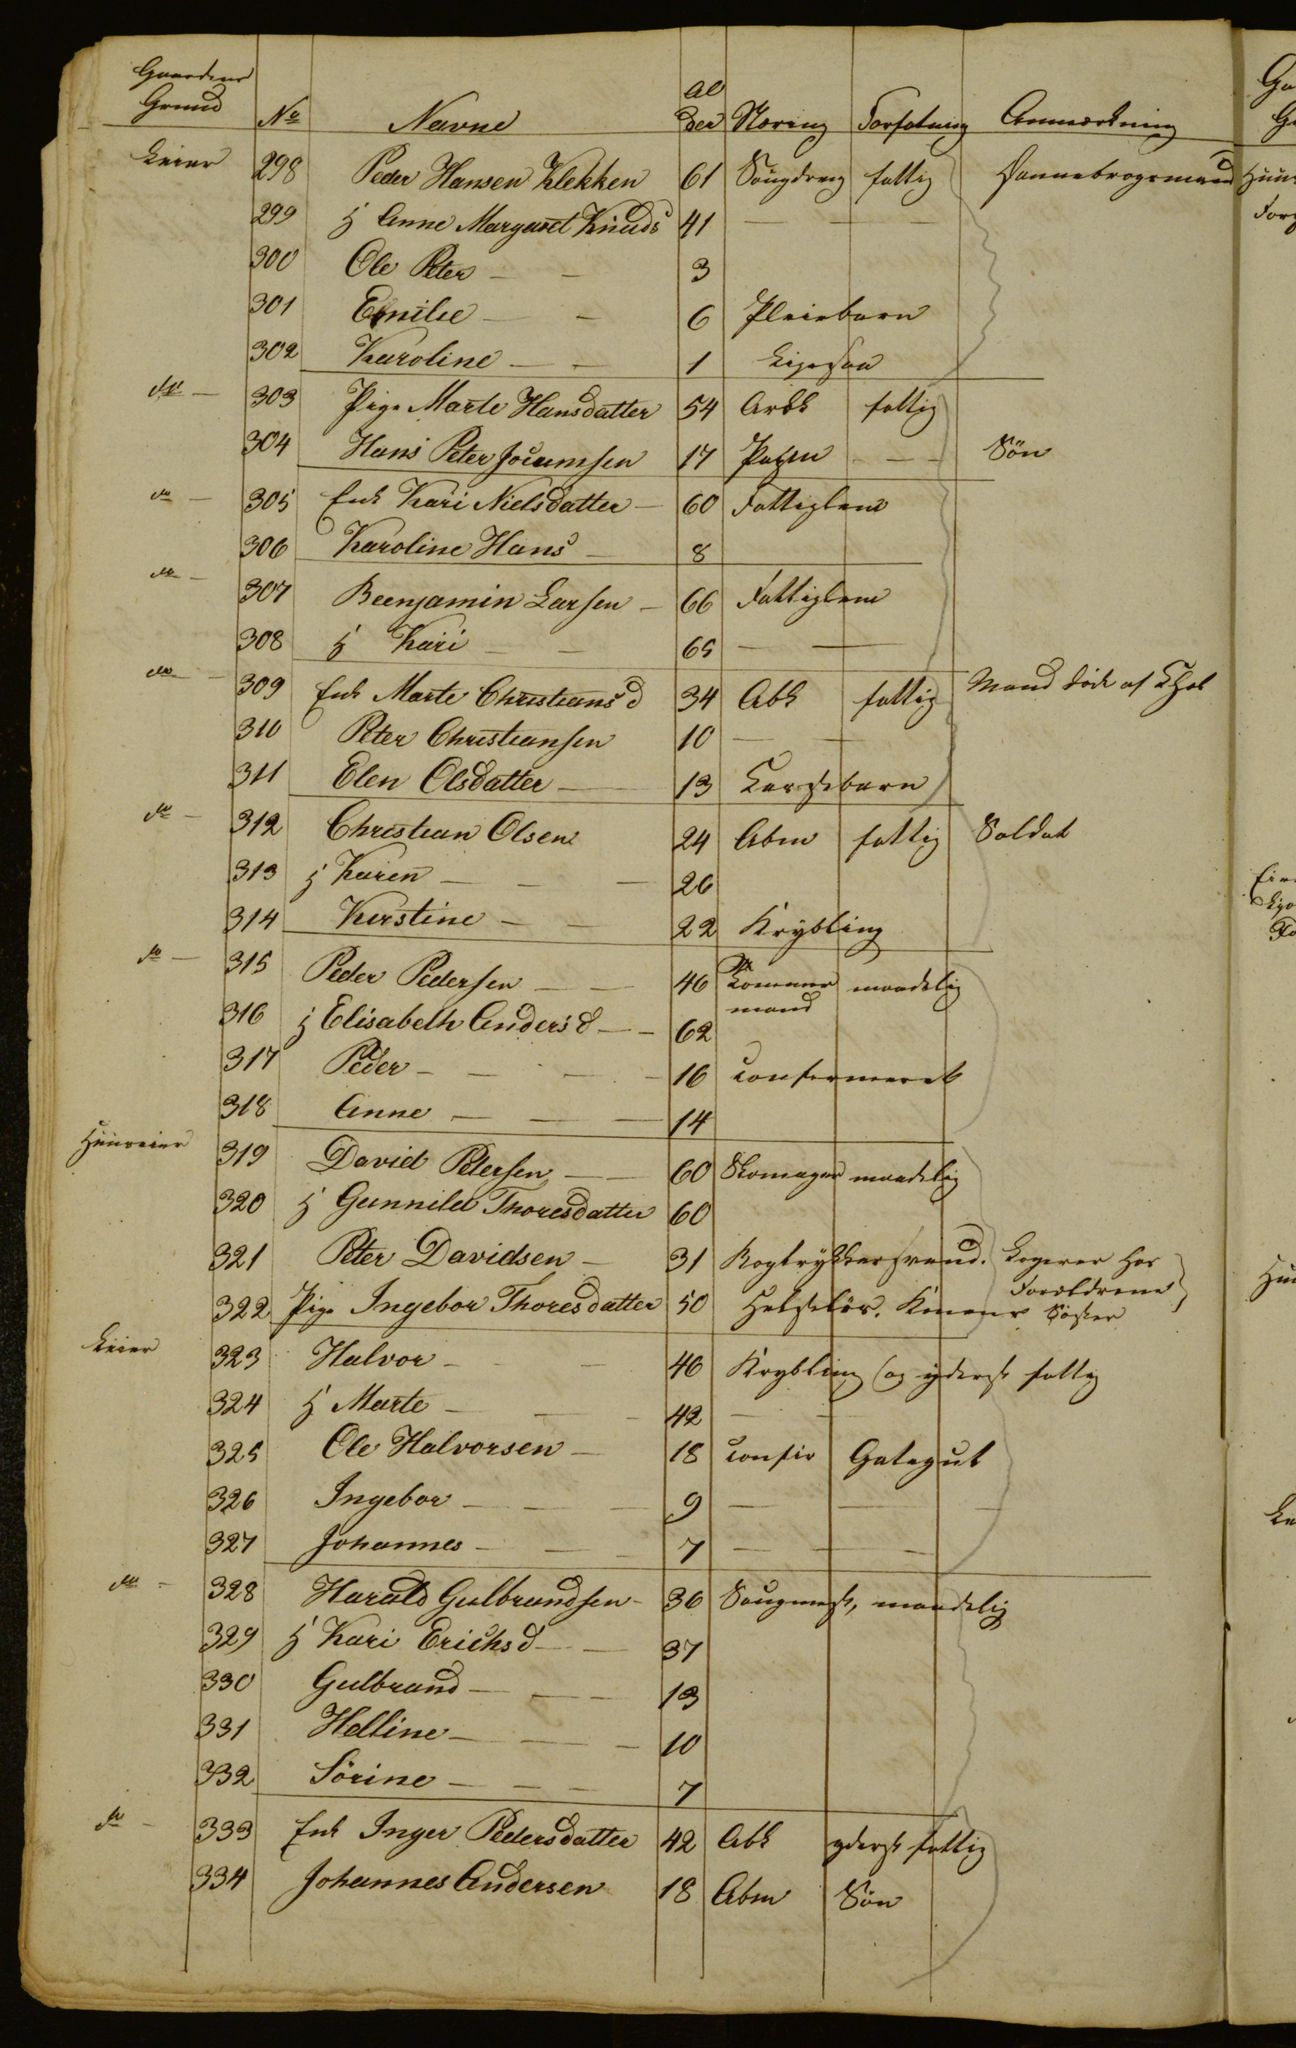 Gaardens Grund No Navne Al der Næring Forfatning Anmærkning
Leier 298 Peder Hansen Klekken 61 Saugdreng fattig Dannebrogsmand
299 H Anne Margaret Knuds 41 — —
300 Ole Peter — — 3
301 Emilie — — 6 Pleiebarn
302 Karoline — — 1 Ligesaa
do — 303 Pige Marte Hansdatter 54 Arbk fattig
304 Hans Peter Jocumsen 17 — — Søn
do — 305 Enk Kari Nielsdatter — 60 Fattiglem
306 Karoline Hans — 8
do — 307 Beenjamin Larsen — 66 Fattiglem
308 H Kari — — 65 — —
do — 309 Enk Marte Christians d 34 Abk fattig Mand døde af
310 Peter Christiansen 10 — —
311 Elen Olsdatter — 13
do — 312 Christian Olsen 24 Abm fattig Soldat
313 H Karen — — — 26
314 Kirstine — — 22 Krybling
do — 315 Peder Pedersen — — 46 Tømmer maadelig
mand
316 H Elisabeth Anders d — — 62
317 Peder — — — — 16 confirmeret
318 Anne — — — 14
Huuseier 319 David Petersen — — 60 Skomager maadelig
320 H Gunnild Thoresdatter 60
321 Peter Davidsen — 31 Bogtrykkersvend. Logerer hos
Forældrene
322 Pige Ingebor Thoresdatter 50 Helseløs. Konens Søster
Leier 323 Halvor — — 46 Krybling og yderst fattig
324 H Marte — — — 42 — —
325 Ole Halvorsen — 18 confir Gategut
326 Ingebor — — — 9 — — —
327 Johannes — — — 7 — — —
do — 328 Harald Gulbrandsen — 36 Saugmest, maadelig
329 H Kari Erichsd — — 37
330 Gulbrand — — — 13
331 Helline — — — 10
332 Sörine — — — 7
do — 333 Enk Inger Pedersdatter 42 Abk yderst fattig
334 Johannes Andersen 18 Abm Søn